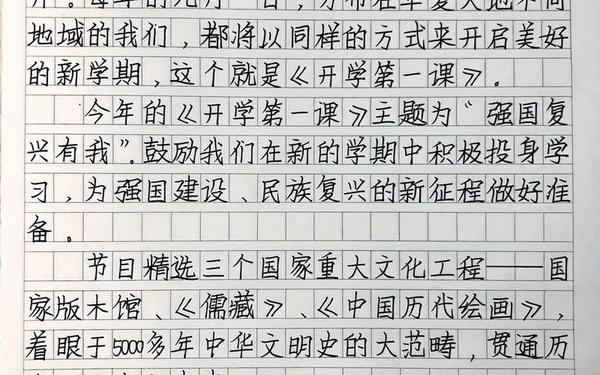 每年的九月一日，分布在华夏大地不同
地域的我们，都将以同样的方式来开启美好
的新学期，这个就是《开学第一课》。
今年的《开学第一课》主题为“强国复
兴有我”.鼓励我们在新的学期中积极投身学
习，为强国建设、民族复兴的新征程做好准
备。
节目精选三个国家重大文化工程——国
家版木馆、《儒藏》、《中国历代绘画》，
着眼于5000多年中华文明史的大范畴，贯通历